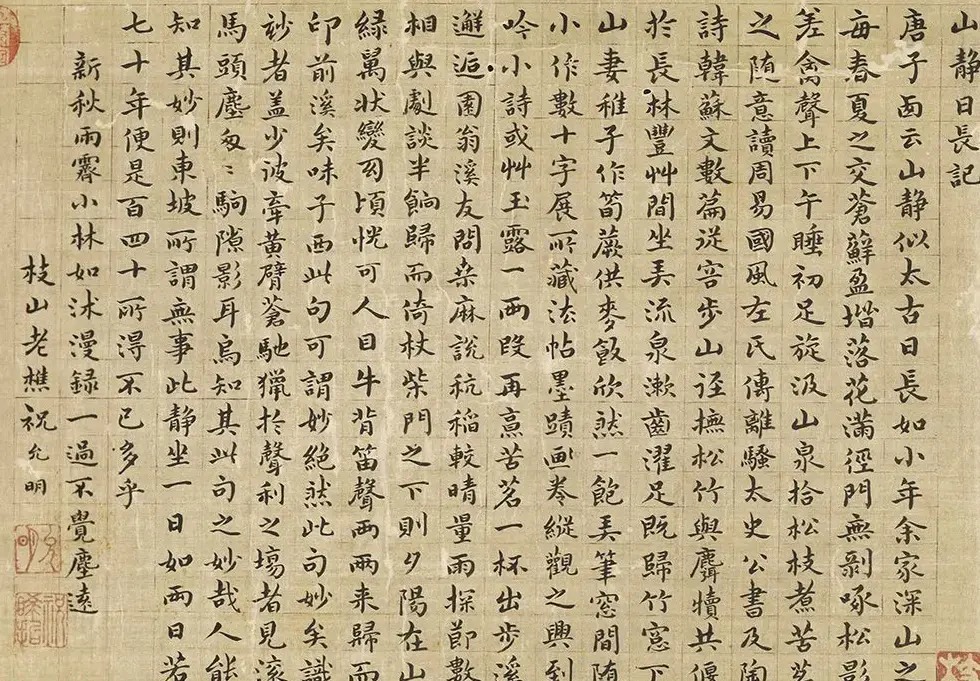 山静日長記
唐子西云山静似太古日長如小年余家深山之
每春夏之交蒼蘚盈堦落花滿徑門無剝啄松影
差禽聲上下午睡初足旋汲山泉拾松枝煮苦茗
之随意讀周易國風左氏傳離騷太史公書及陶
詩韓蘇文數篇從容步山逕撫松竹與麛犢共偃
於長林豐艸間坐弄流泉漱齒濯足既歸竹窓下
山妻稚子作筍蕨供麥飯欣然一飽弄筆窓間随
小作數十字展所藏法帖墨蹟画卷縱觀之興到
吟小詩或艸玉露一兩段再烹苦茗一杯出步溪
邂逅園翁溪友問桑麻說秔稻較晴量雨探節數
相與劇談半餉歸而倚杖柴門之下則夕陽在山
緑萬状變幻頃恍可人目牛背笛聲兩兩来歸而
印前溪矣味子西此句可謂妙絶然此句妙矣識
妙者盖少彼牽黄臂蒼馳獵於聲利之塲者見滚
馬頭塵匆〻駒隙影耳烏知其此句之妙哉人能
知其妙則東坡所謂無事此静坐一日如兩日若
七十年便是百四十所得不已多乎
新秋雨霽小林如沐漫録一過不覺塵遠
枝山老樵祝允明